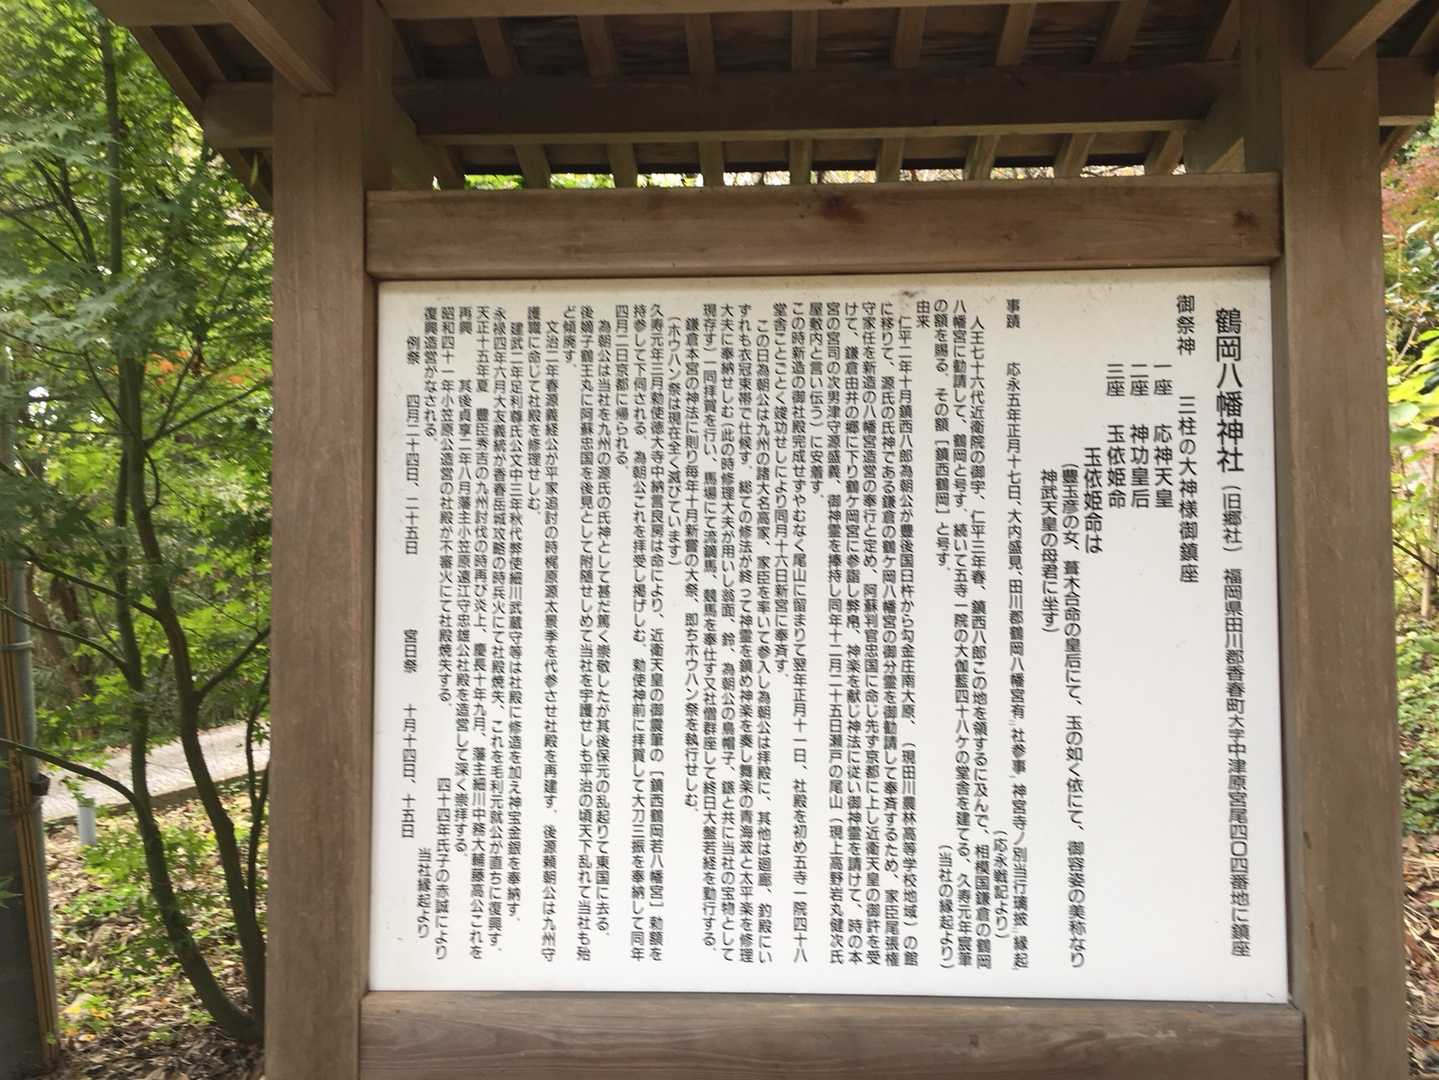 鶴岡八幡神社（旧郷社）　福岡県田川郡香春町大字中津原宮尾四〇四番地に鎮座
御祭神　三柱の大神様御鎮座
一座　応神天皇
二座　神功皇后
三座　玉依姫命
玉依姫命は
（豊玉彦の女、葺木合命の皇后にて、玉の如く依にて、御容姿の美称なり
神武天皇の母君に坐す）
事蹟　応永五年正月十七日、大内盛見、田川郡鶴岡八幡宮有」社参事」神宮寺ノ別当行璃披」縁起」
（応永戦記より）
人王七十六代近衛院の御宇、仁平三年春、鎮西八郎この地を領するに及んで、相模国鎌倉の鶴岡
八幡宮に勧請して、鶴岡と号す、続いて五寺一院の大伽藍四十八ケの堂舎を建てる、久寿元年宸筆
の額を賜る、その額［鎮西鶴岡］と号す、　（当社の縁起より）
由来
仁平二年十月鎮西八郎為朝公が豊後国臼杵から勾金庄南大原、（現田川農林高等学校地域）の館
に移りて、源氏の氏神である鎌倉の鶴ケ岡八幡宮の御分霊を御勧請して奉斉するため、家臣尾張権
守家任を新造の八幡宮造営の奉行と定め、阿蘇判官忠国に命し先ず京都に上し近衛天皇の御許を受
けて、鎌倉由井の郷に下り鶴ケ岡宮に参詣し弊帛、神楽を献じ神法に従い御神霊を請けて、時の本
宮の宮司の次男津守源盛義、御神霊を捧持し同年十二月二十五日瀬戸の尾山（現上高野岩丸健次氏
屋敷内と言い伝う）に安着す、
この時新造の御社殿完成せずやむなく尾山に留まりて翌年正月十一日、社殿を初め五寺一院四十八
堂舎ことごとく竣功せしにより同月十六日新宮に奉斉す、
この日為朝公は九州の諸大名高家、家臣を率いて参入し為朝公は拝殿に、其他は廻廊、釣殿にい
ずれも衣冠束帯で仕候す、総ての修法が終って神霊を鎮め神楽を奏し舞楽の青海波と太平楽を修理
大夫に奉納せしむ（此の時修理大夫が用いし翁面、鈴、為朝公の烏帽子、鎹と共に当社の宝物として
現存す）一同拝賀を行い、馬場にて流鏑馬、競馬を奉仕す又社僧群座して終日大盤若経を勤行する、
鎌倉本宮の神法に則り毎年十月新嘗の大祭、即ちホウハン祭を執行せしむ、
（ホウハン祭は現在全く滅びています）
久寿元年三月勅使徳大寺中納言良房は命により、近衛天皇の御震筆の［鎮西鶴岡若八幡宮］勅額を
持参して下伺される、為朝公これを拝受し掲げしむ、勅使神前に拝賀して大刀三振を奉納して同年
四月二日京都に帰られる、
為朝公は当社を九州の源氏の氏神として甚だ篤く崇敬したが其後保元の乱起りて東国に去る、
後嫡子鶴王丸に阿蘇忠国を後見として附随せしめて当社を宇護せしも平治の頃天下乱れて当社も殆
ど傾廃す、
文治二年春源義経公が平家追討の時梶原源太景季を代参させ社殿を再建す、後源頼朝公は九州守
護職に命じて社殿を修理せしむ、
建武二年足利尊氏公文中三年秋代弊使細川武蔵守等は社殿に修造を加え神宝金銀を奉納す、
永禄四年六月大友義統が香春岳城攻略の時兵火にて社殿焼失、これを毛利元就公が直ちに復興す、
天正十五年夏　豊臣秀吉の九州討伐の時再び炎上、慶長十年九月、藩主細川中務大輔藤高公これを
再興　　其後貞享二年八月藩主小笠原遠江守忠雄公社殿を造営して深く崇拝する、
昭和四十一年小笠原公造営の社殿が不審火にて社殿焼失する、　四十四年氏子の赤誠により
復興造営がなされる、　当社縁起より
例祭　四月二十四日、二十五日　　宮日祭　十月十四日、十五日